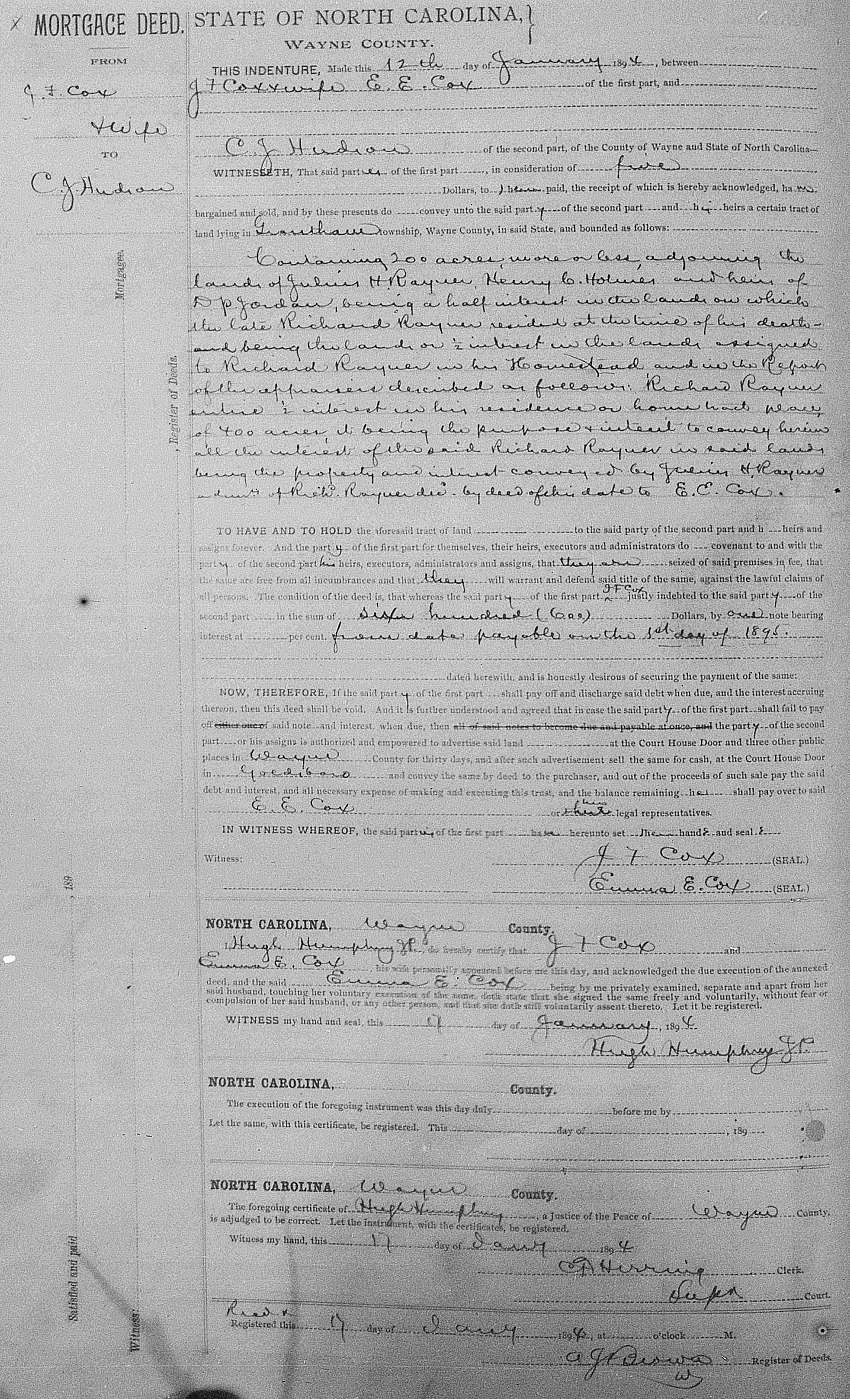 MORTGAGE DEED.
FROM
J. F. Cox
& Wife
TO
C. J. Hudson
Mortgagee.
, Register of Deeds.
, 189
Satisfied and paid
Witness:
STATE OF NORTH CAROLINA,
WAYNE COUNTY.
THIS INDENTURE, Made this 12th day of January 1894, between
J F Cox & wife E. E. Cox of the first part, and
C. J. Hudson of the second part, of the County of Wayne and State of North Carolina—
WITNESSETH, That said parties of the first part, in consideration of five
Dollars, to them paid, the receipt of which is hereby acknowledged, have
bargained and sold, and by these presents do convey unto the said party of the second part and his heirs a certain tract of
land lying in Grantham township, Wayne County, in said State, and bounded as follows:
Containing 200 acres, more or less, adjoining the
lands of Julius H Rayner, Henry C. Holmes and heirs of
D P Jordan, being a half interest in the lands on which
the late Richard Rayner resided at the time of his death—
and being the lands or ½ interest in the lands assigned
to Richard Rayner in his Homestead and in the Report
of the appraisers described as follows: Richard Rayner
entire ½ interest in his residence or home tract place
of 400 acres, it being the purpose & intent to convey herein
all the interest of the said Richard Rayner in said lands
being the property and interest conveyed by Julius H. Rayner
admr of Richd. Rayner decd. by deed of this date to E. E. Cox.
TO HAVE AND TO HOLD the aforesaid tract of land to the said party of the second part and h heirs and
assigns forever. And the party of the first part for themselves, their heirs, executors and administrators do covenant to and with the
party of the second part his heirs, executors, administrators and assigns, that they are seized of said premises in fee, that
the same are free from all incumbrances and that they will warrant and defend said title of the same, against the lawful claims of
all persons. The condition of the deed is, that whereas the said party of the first part J F Cox justly indebted to the said party of the
second part in the sum of six hundred (600) Dollars, by one note bearing
interest at per cent. from date payable on the 1st day of 1895.
dated herewith, and is honestly desirous of securing the payment of the same:
NOW, THEREFORE, If the said party of the first part shall pay off and discharge said debt when due, and the interest accruing
thereon, then this deed shall be void. And it is further understood and agreed that in case the said party of the first part shall fail to pay
off either one of said note and interest, when due, then all of said notes to become due and payable at once, and the party of the second
part or his assigns is authorized and empowered to advertise said land at the Court House Door and three other public
places in Wayne County for thirty days, and after such advertisement sell the same for cash, at the Court House Door
in Goldsboro and convey the same by deed to the purchaser, and out of the proceeds of such sale pay the said
debt and interest, and all necessary expense of making and executing this trust, and the balance remaining he shall pay over to said
E. E. Cox or their his legal representatives.
IN WITNESS WHEREOF, the said parties of the first part have hereunto set their hands and seals
Witness: J F Cox (SEAL.)
Emma E. Cox (SEAL.)
NORTH CAROLINA, Wayne County.
I Hugh Humphry J.P., do hereby certify that J F Cox and
Emma E. Cox, his wife personally appeared before me this day, and acknowledged the due execution of the annexed
deed, and the said Emma E. Cox being by me privately examined, separate and apart from her
said husband, touching her voluntary execution of the same, doth state that she signed the same freely and voluntarily, without fear or
compulsion of her said husband, or any other person, and that she doth still voluntarily assent thereto. Let it be registered.
WITNESS my hand and seal, this 17 day of January, 1894
Hugh Humphry J.P.
NORTH CAROLINA, County.
The execution of the foregoing instrument was this day duly before me by
Let the same, with this certificate, be registered. This day of , 189
NORTH CAROLINA, Wayne County.
The foregoing certificate of Hugh Humphry, a Justice of the Peace of Wayne County,
is adjudged to be correct. Let the instrument, with the certificates, be registered.
Witness my hand, this 17 day of Jany 1894
C F Herring Clerk.
Supr Court.
Recd &
Registered this 17 day of Jany 1894, at o'clock M.
A J Brown Register of Deeds.